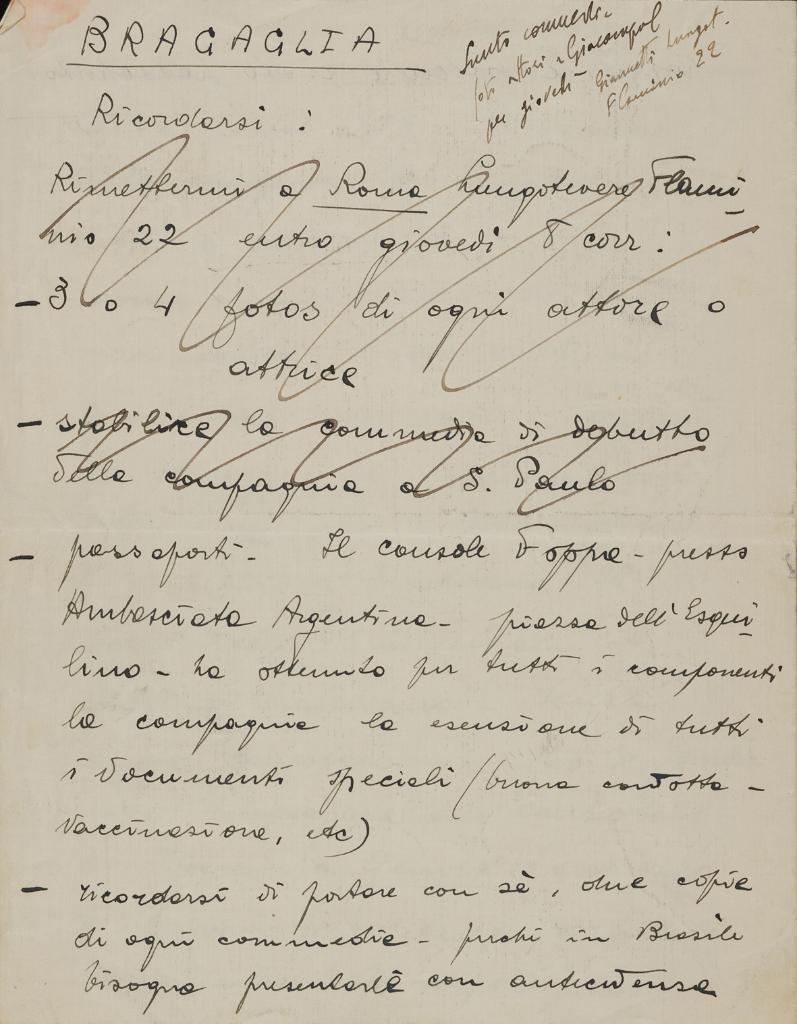 BRAGAGLIA
Sunto commedie
foto attori a Giacompol
per giovedì Giannetti Lungot.
Flaminio 22
Ricordarsi :
Rimettermi a Roma Lungotevere Flami-
nio 22 entro giovedì 8 corr :
- 3 o 4 fotos di ogni attore o
attrice
- stabilire la commedia di debutto
della compagnia a S. Paulo
- passaporti - Il console Foppa - presso
Ambasciata Argentina - piazza dell'Esqui-
lino - ha ottenuto per tutti i componenti
la compagnia la esenzione di tutti
i documenti speciali (buona condotta -
vaccinazione, etc)
- ricordarsi di portare con sè, due copie
di ogni commedia - perchè in Brasile
bisogna presentarle con antecedenza